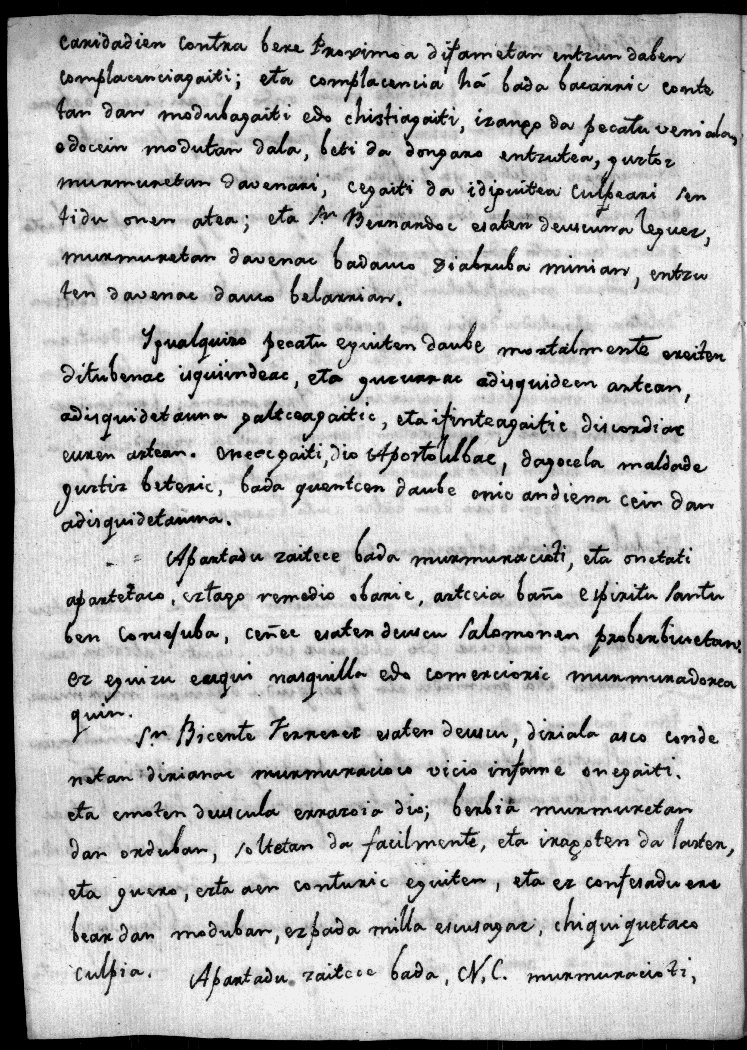 caridadien contra bere Proximoa difametan entzun daben
complacenciagaiti; eta complacencia há bada bacarric conte
tan dan modubagaiti edo chistiagaiti, izango da pecatu veniala,
edocein modutan dala, beti da dongaro entzutea, gustoz
murmuretan davenari, cegaiti da idiquitea culpeari sen
tidu onen atea; eta Sn Bernardoc esaten deuscuna leguez,
murmuretan davenac badauco diabruba minian, entzu
ten davenac dauco belarrian.
Ygualquiro pecatu eguiten daube mortalmente ereiten
ditubenac isquiindeac, eta guzurrac adisquideen artean,
adisquidetauna galtceagaitic, eta ifinteagaitic discordiac
euren artean. Onecgaiti, dio Apostolubac, dagocela maldade
guztiz beteric, bada quentcen daube onic andiena cein dan
adisquidetauna.
Apartadu zaitece bada murmuracioti, eta onetati
apartetaco, eztago remedio obaric, artceia baño espiritu santu
ben consejuba, ceñec esaten deuscu Salomonen proberbiuetan.
ez eguizu euqui nasquilla edo comercioric murmuradorea
quin.
Sn Bicente Ferrerec esaten deuscu, diriala asco conde
netan dirianac murmuracioco vicio infame onegaiti.
eta emoten deuscula errazoia dio; berbiä murmuretan
dan orduban, soltetan da facilmente, eta iragoten da laster,
eta guero, ezta aen conturic eguiten, eta ez confesadu ere
bear dan moduban, ezpada milla escusagaz, chiquiquetaco
culpia. Apartadu zaitece bada, C.N.C. murmuracioti,